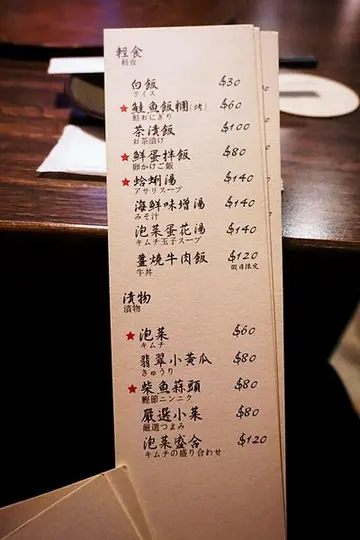 輕食
軽台
白飯 $30
ライス
★鮭魚飯糰(烤) $60
鮭おにぎり
茶漬飯 $100
お茶漬け
★鮮蛋拌飯 $80
卵かけご飯
★蛤蜊湯 $140
アサリスープ
海鮮味增湯 $140
みそ汁
泡菜蛋花湯 $140
キムチ玉子スープ
薑燒牛肉飯 $120
牛丼 假日限定
漬物
漬物
★泡菜 $60
キムチ
翡翠小黃瓜 $80
きゅうり
★柴魚蒜頭 $80
鰹節ニンニク
嚴選小菜 $80
厳選つまみ
泡菜盛合 $120
キムチの盛り合わせ